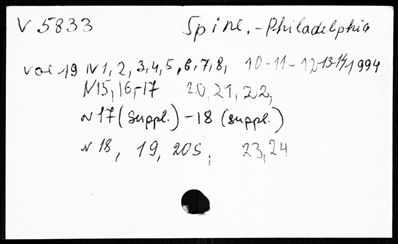 V 5833 Spine.-Philadelphia
vol 19 N1, 2, 3, 4, 5, 6, 7, 8, 10-11-12-13-14, 1994
N15, 16,-17 20, 21, 22,
N17 (suppl.) - 18 (suppl.)
N18, 19, 20S, 23, 24